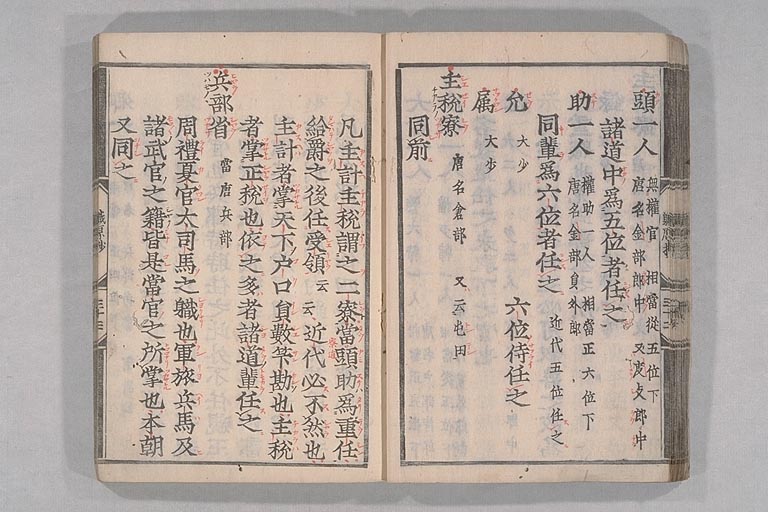 頭一人 無權官 相當從五位下
唐名金部郎中 又度支郎中
諸道中爲五位者任之
助一人 權助一人 相當正六位下
唐名金部員外郎
同輩爲六位者任之 近代五位任之
允 大少 六位侍任之
屬 大少
主税寮 唐名倉部 又云屯田
同前
凡主計主税謂之二寮當頭助爲重任
給爵之後任受領云云近代必不然也
主計者掌天下户口員數等勘也主税
者掌正税也依之多者諸道輩任之
兵部省 當唐兵部
周禮夏官大司馬之職也軍旅兵馬及
諸武官之籍皆是當官之所掌也本朝
又同之
職原抄 三十三